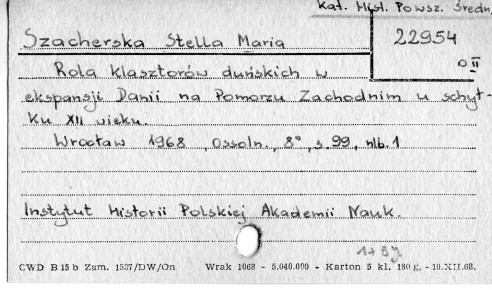 Kat. Hist. Powsz. Średn.
22954
O II
Szacherska Stella Maria
Rola klasztorów duńskich w
ekspansji Danii na Pomorzu Zachodnim u schył-
ku XII wieku.
Wrocław 1968, Ossolin., 8°, s. 99, nlb. 1
Instytut Historii Polskiej Akademii Nauk.
CWD B 15 b Zam. 1537/DW/On Wrak 1068 - 5.040.000 - Karton 5 kl. 180 g, - 10.XII.68.